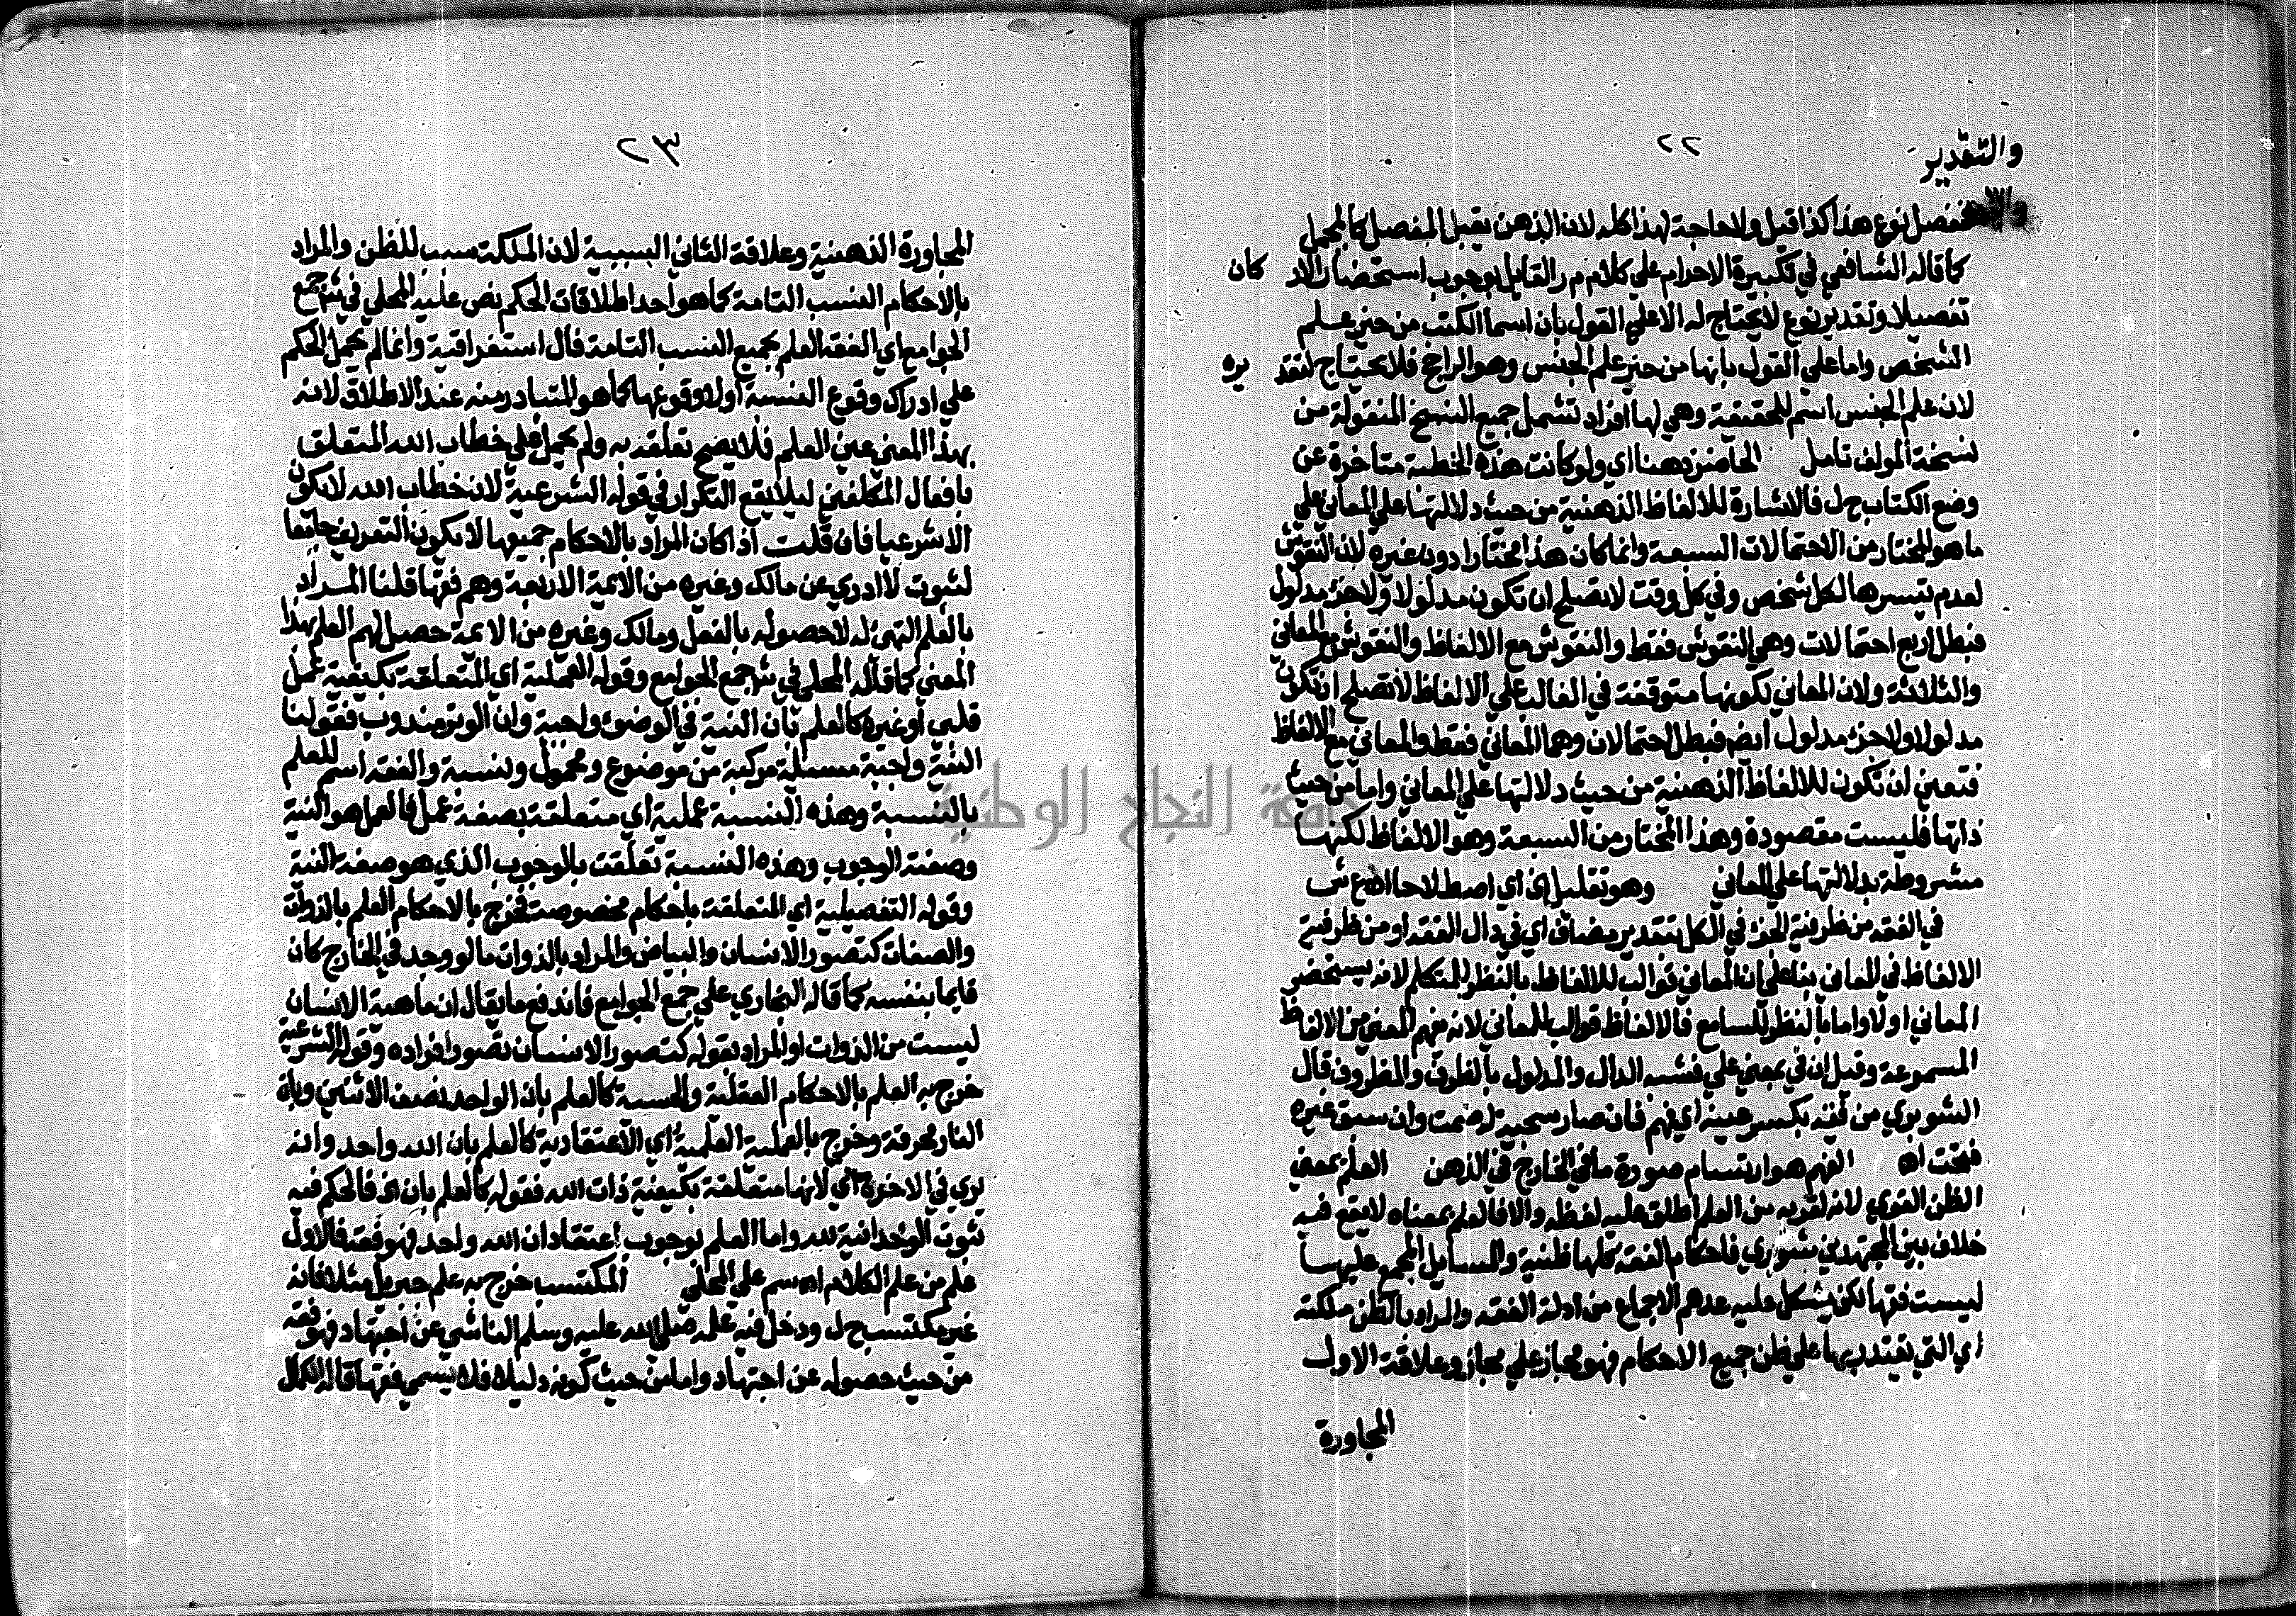 ٢٢
والتقدير
مفصل نوع هذا كذا قيل ولا حاجة لهذا كله لان الذهن يقبل المفصل كالمجمل
كما قاله الشافعي في تكبيرة الاحرام على كلام م ر القايل بوجوب استحضار الار كان
تفصيلا وتقدير نوع لا يحتاج له الا على القول بان اسما الكتب من حيز علم
الشخص واما على القول بانها من حيز علم الجنس وهو الراجح فلا يحتاج لتقد يره
لان علم الجنس اسم للحقيقة وهي لها افراد تشمل جميع النسخ المنقولة من
نسخة المولف تامل الحاضر ذهنا اي ولو كانت هذه الخطبة متاخرة عن
وضع الكتاب ح ل فالاشارة للالفاظ الذهنية من حيث دلالتها على المعاني على
ما هو المختار من الاحتمالات السبعة وانما كان هذا مختارا دون غيره لان النقوش
لعدم تيسرها لكل شخص وفي كل وقت لا تصلح ان تكون مدلولا ولا جزء مدلول
فبطل اربع احتمالات وهي النقوش فقط والنقوش مع الالفاظ والنقوش مع المعاني
والثلاثة ولان المعاني لكونها متوقفة في الغالب على الالفاظ لا تصلح ان تكون
مدلولا ولا جزء مدلول ايضم فبطل احتمالان وهما المعاني فقط والمعاني مع الالفاظ
فتعين ان تكون للالفاظ الذهنية من حيث دلالتها على المعاني واما من حيث
ذاتها فليست مقصودة وهذا المختار من السبعة وهو الالفاظ لكنها
مشروطة بدلالتها على المعاني وهو تقليل اي اصطلاحا اه ع ش
في الفقه من ظرفية الجزء في الكل بتقدير مضاف اي في دال الفقه او من ظرفية
الالفاظ في المعاني بنا على ان المعاني قوالب للالفاظ بالنظر للمتكلم لانه يستحضر
المعاني اولا واما بالنظر للسامع فالالفاظ قوالب للمعاني لانه يفهم المعنى من الالفاظ
المسموعة وقيل ان في بمعنى على فشبه الدال والمدلول بالظرف والمظروف قال
الشوبري من فقه بكسر عينه اي فهم فان صار سجية له ضمت وان سبق غيره
فتحت اه الفهم هو ارتسام صورة ما في الخارج في الذهن العلم بمعنى
الظن القوي لانه لقربه من العلم اطلق عليه لفظه والا فالعلم بمعناه لا يقع فيه
خلاف بين المجتهدين شوبري فاحكام الفقه كلها ظنية والمسايل المجمع عليها
ليست فقها لكن يشكل عليه عدهم الاجماع من ادلة الفقه والمراد بالظن ملكته
اي التي يقتدر بها على ظن جميع الاحكام فهو مجاز على مجاز وعلاقة الاول
المجاورة
٢٣
المجاورة الذهنية وعلاقة الثاني السببية لان الملكة سبب للظن والمراد
بالاحكام النسب التامة كما هو احد اطلاقات الحكم نص عليه المحلي في شرح جمع
الجوامع اي الفقه العلم بجميع النسب التامة فال استغراقية وانما لم يحمل الحكم
على ادراك وقوع النسبة او لا وقوعها كما هو المتبادر منه عند الاطلاق لانه
بهذا المعنى عين العلم فلا يصح تعلقه به ولم يحمل على خطاب الله المتعلق
بافعال المكلفين ليلا يقع التكرار في قوله الشرعية لان خطاب الله لا يكون
الا شرعيا فان قلت اذا كان المراد بالاحكام جميعها لا يكون التعريف جامعا
لثبوت لا ادري عن مالك وغيره من الايمة الاربعة وهم فقها قلنا المراد
بالعلم التهيئ له لا حصوله بالفعل ومالك وغيره من الايمة حصل لهم العلم بهذا
المعنى كما قاله المحلي في شرح جمع الجوامع وقوله العملية اي المتعلقة بكيفية عمل
قلبي او غيره كالعلم بان النية في الوضوء واجبة وان الوتر مندوب فقولنا
النية واجبة مسئلة مركبة من موضوع ومحمول ونسبة والفقه اسم للعلم
بالنسبة وهذه النسبة عملية اي متعلقة بصفة عمل فالعمل هو النية
وصفته الوجوب وهذه النسبة تعلقت بالوجوب الذي هو صفة النية
وقوله التفصيلية اي المتعلقة باحكام مخصوصة فخرج بالاحكام العلم بالذوات
والصفات كتصور الانسان والبياض والمراد بالذوات ما لو وجد في الخارج كان
قايما بنفسه كما قاله البخاري على جمع الجوامع فاندفع ما يقال ان ماهية الانسان
ليست من الذوات او المراد بقوله كتصور الانسان تصور افراده وقوله الشرعية
خرج به العلم بالاحكام العقلية والحسية كالعلم بان الواحد نصف الاثنين وبان
النار محرقة وخرج بالعملية العلمية اي الاعتقادية كالعلم بان الله واحد وانه
يرى في الاخرة اي لانها متعلقة بكيفية ذات الله فقوله كالعلم بان الخ فالحكم فيه
ثبوت الوحدانية لله واما العلم بوجوب اعتقاد ان الله واحد فهو فقه فالاول
علم من علم الكلام اه سم على المحلي المكتسب خرج به علم جبريل مثلا فانه
غير مكتسب ح ل ودخل فيه علمه صلى الله عليه وسلم الناشي عن اجتهاد فهو فقه
من حيث حصوله عن اجتهاد واما من حيث كونه دليلا فلا يسمى فقها قاله الكمال
جامعة النجاح الوطنية